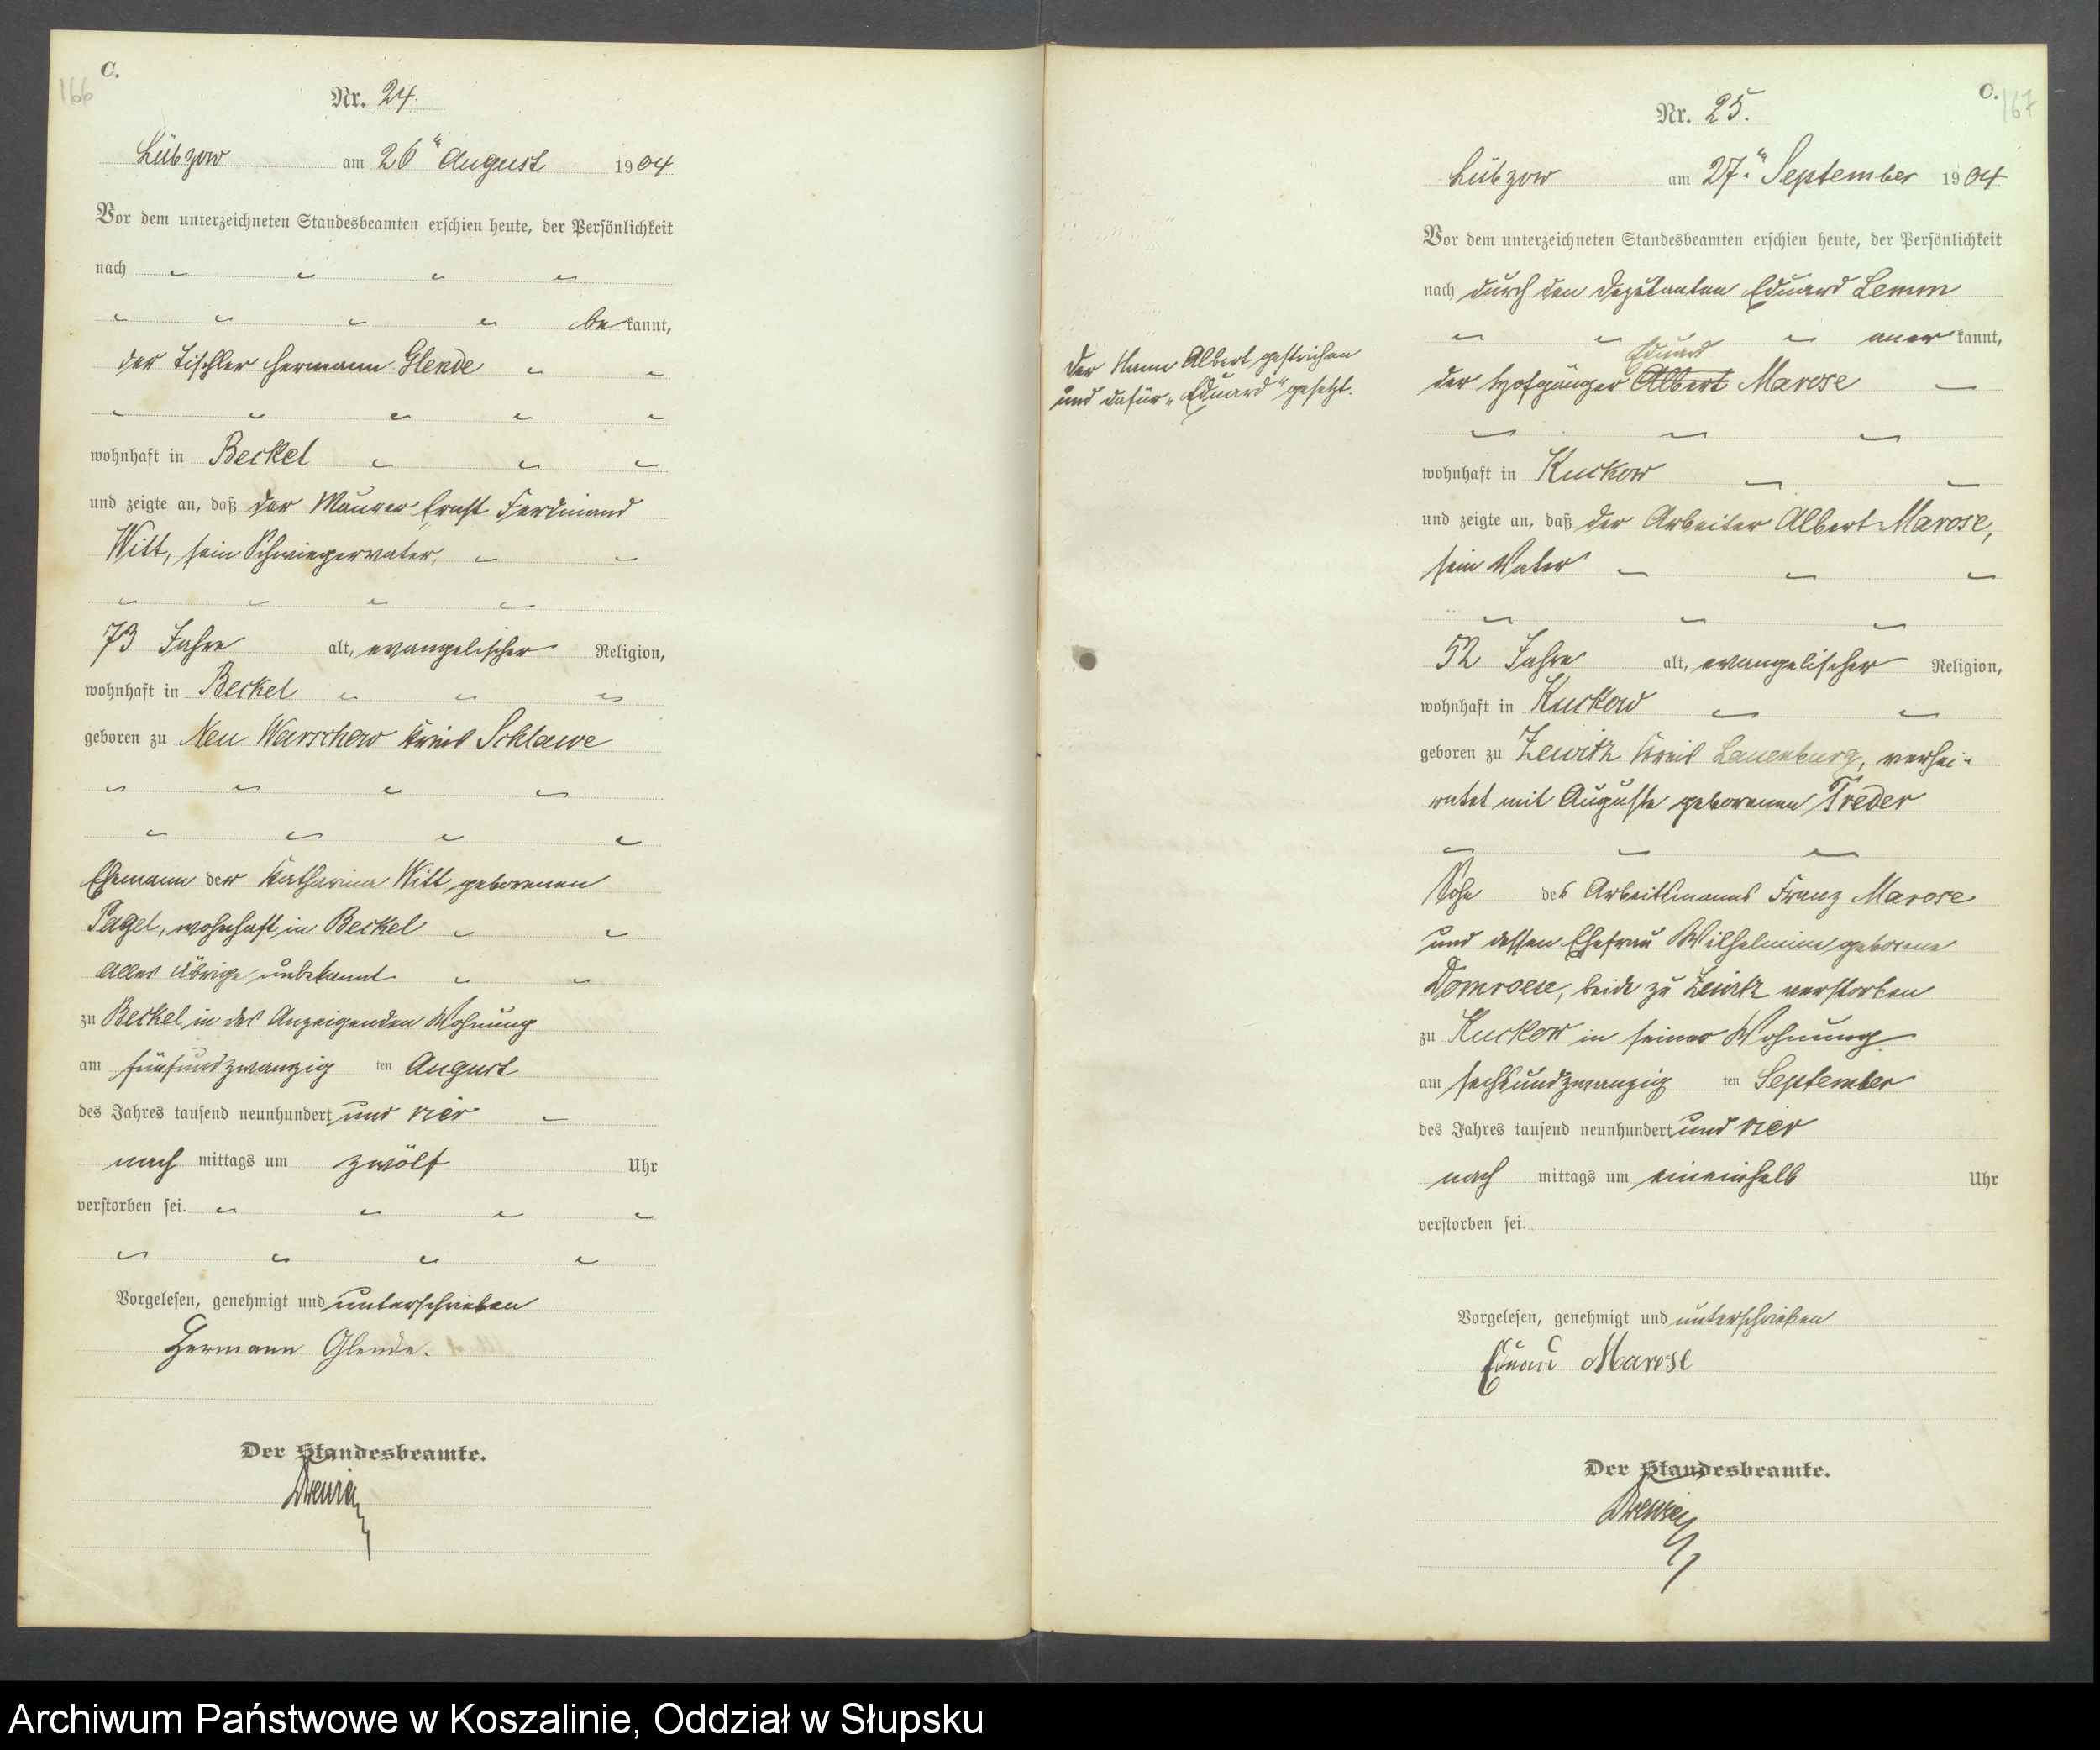 166
C.
Nr. 24.
Lübzow am 26ten August 1904
Vor dem unterzeichneten Standesbeamten erschien heute, der Persönlichkeit
nach
be kannt,
der Tischler Hermann Glende
wohnhaft in Beckel
und zeigte an, daß der Maurer Ernst Ferdinand
Witt, sein Schwiegervater,
73 Jahre alt, evangelischer Religion,
wohnhaft in Beckel
geboren zu Neu Warschow Kreis Schlawe
Ehemann der Katharina Witt geborenen
Pagel, wohnhaft in Beckel
Alles Übrige unbekannt
zu Beckel, in des Anzeigenden Wohnung
am fünfundzwanzig ten August
des Jahres tausend neunhundert und vier
nach mittags um zwölf Uhr
verstorben sei.
Vorgelesen, genehmigt und unterschrieben
Hermann Glende.
Der Standesbeamte.
C.
167
Nr. 25.
Lübzow am 27ten September 1904
Vor dem unterzeichneten Standesbeamten erschien heute, der Persönlichkeit
nach durch den Deputanten Eduard Lemm
aner kannt,
Eduard
der Hofgänger Albert Marose
Der Name Albert gestrichen
und dafür „Eduard“ gesetzt.
wohnhaft in Kuckow
und zeigte an, daß der Arbeiter Albert Marose,
sein Vater
52 Jahre alt, evangelischer Religion,
wohnhaft in Kuckow
geboren zu Zewitz Kreis Lauenburg, verhei-
ratet mit Auguste geborenen Treder
Sohn des Arbeitsmanns Franz Marose
und dessen Ehefrau Wilhelmine geborene
Domroese, beide zu Zewitz verstorben
zu Kuckow in seiner Wohnung
am sechsundzwanzig ten September
des Jahres tausend neunhundert und vier
nach mittags um eineinhalb Uhr
verstorben sei.
Vorgelesen, genehmigt und unterschrieben
Eduard Marose
Der Standesbeamte.
Archiwum Państwowe w Koszalinie, Oddział w Słupsku